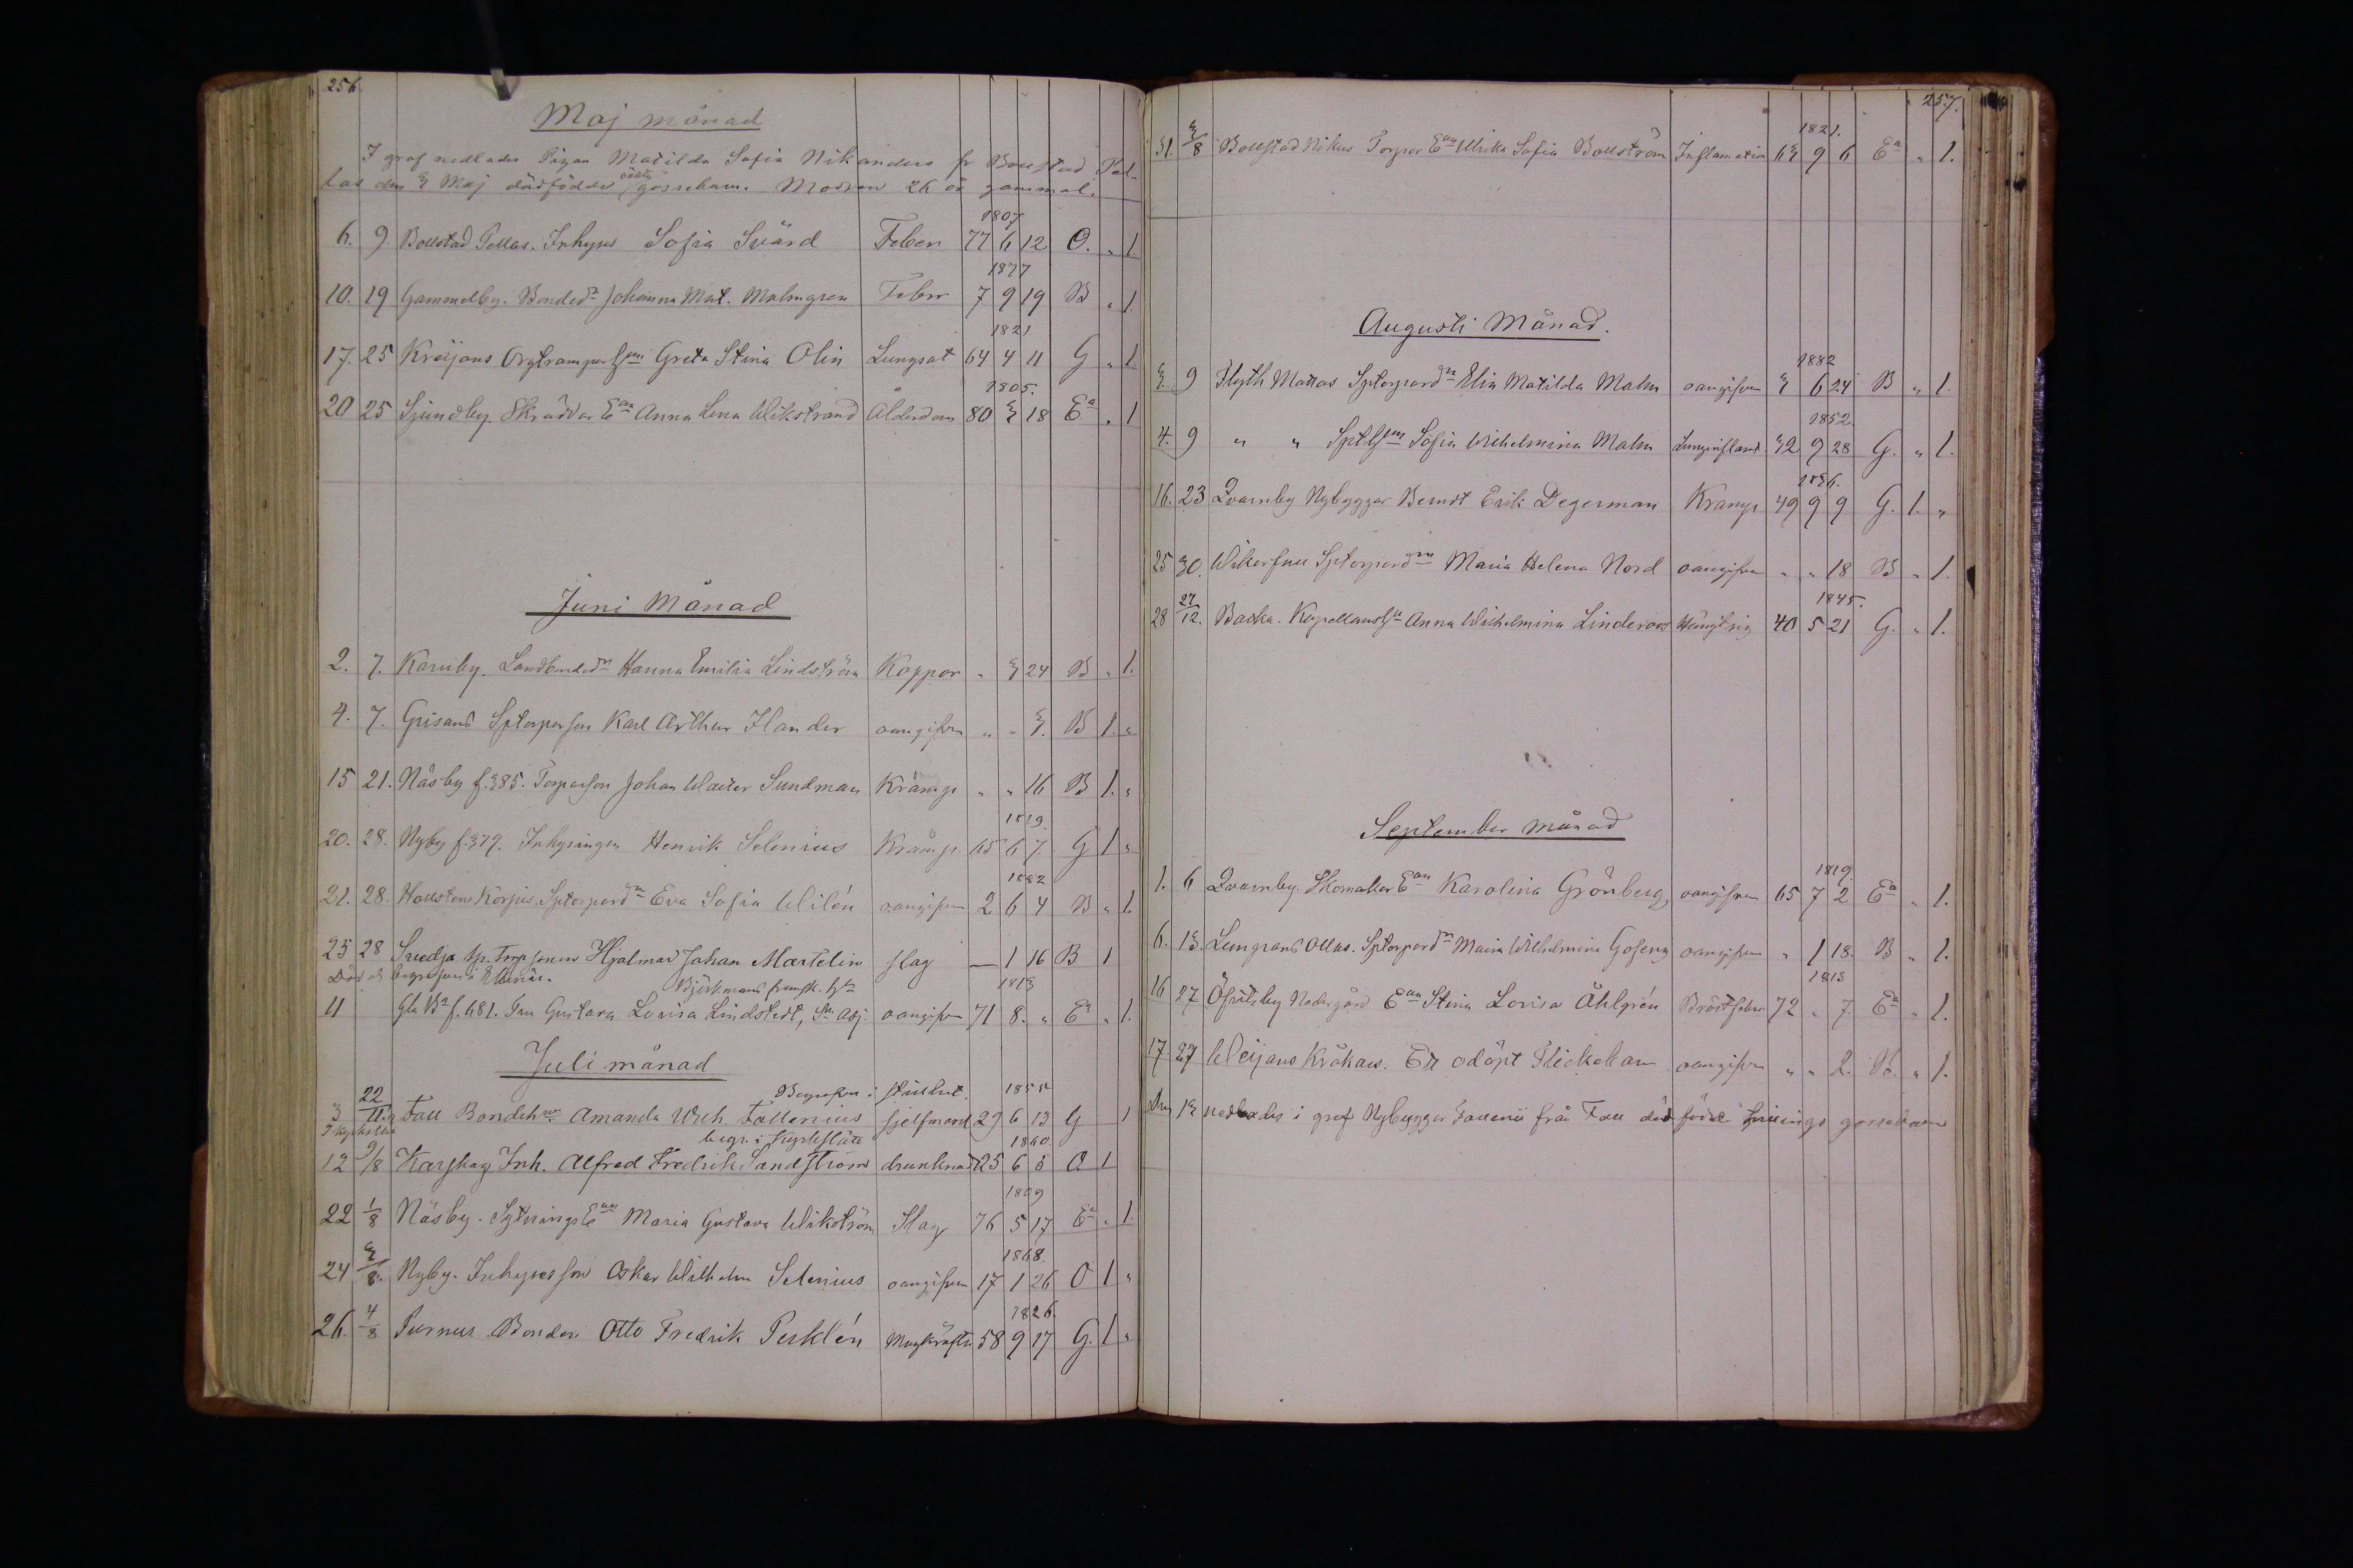 256.
Maj månad
I graf nedlades Pigan Matilda Sofia Nikanders fr Bollstad Pel-
las den 3 Maj dödfödde oäkta gossebarn. Modren 26 år gammal.
1807
6. 9. Bollstad Pellas. Inhyses Sofia Svärd Feber 77 6 12 O. „ 1.
1877
10. 19 Gammelby. Bondedr Johanna Mat. Malmgren Feber 7 9 19 B „ 1.
1821
17. 25 Kreijans Greta Stina Olin Lungsot 64 4 11 G „ 1.
1805.
20 25 Sjundby. Skräddar Ean Anna Lena Wikstrand Ålderdom 80 3 18 Ea „ 1
Juni Månad
2. 7. Karuby. Landbondedr Hanna Emilia Lindström Koppor „ 3 24 B „ 1.
4. 7. Grisans Sptorparson Karl Arthur Ilander oangifven „ „ 3. B 1. „
15 21. Näsby f. 385. Torparson Johan Walter Sundman Kramp „ „ 16 B 1. „
1819.
20. 28. Nyby f. 379. Inhysingen Henrik Selenius Kramp 65 6 7. G 1 „
1882
21. 28. Korpis, Sptorpardr Eva Sofia Wilén oangifven 2 6 4 B „ 1.
25 28 Svedja sp. Hjalmar Johan Martelin slag — 1 16 B 1
Död och begrafven i
Björkmans 1813
11 Gla Ba f. 481. Fru Gustava Lovisa Lindstedt, oangifven 71 8. „ Ea „ 1.
Juli månad
Begrafven i stillhet. 1855
3 22/11 Fall Bondeh Amanda Wilh. Fallenius sjelfmord 29 6 13 G 1
begr. i Kyrkslätt 1860
12 9/8 Karskog Inh. Alfred Fredrik Sandström drunknad 25 6 5 O 1
1809
22 1/8 Näsby. Sytnings Ean Maria Gustava Wikström Slag 76 5 17 Ea „ 1.
1868.
24 2/8. Nyby. Inhysesson Oskar Wilhelm Selenius oangifven 17 1 26 O 1 „
1826.
26. 4/8 Purnus Bonden Otto Fredrik Perklén Magkräfta 58 9 17 G. 1 „
257.
1821.
31. 3/8 Bollstad Nikus Torpar Ean Ulrika Sofia Bollström Inflamation 63 9 6 Ea „ 1.
Augusti Månad.
1882
3. 9 Flyth Mattas Sptorpardr Elin Matilda Malm oangifven 3 6 24 B „ 1.
1852.
4. 9 „ „ Sofia Wilhelmina Malm Lunginflam 32 9 28 G. „ 1.
1836.
16. 23 Qvarnby Nybyggar Berndt Erik Degerman Kramp 49 9 9 G. 1. „
25 30. Sptorpardr Maria Helena Nord oangifven „ „ 18 B „ 1.
1845.
28 27/12. Backa. Kapellansh Anna Wilhelmina Linderoos 40 5 21 G. „ 1.
September månad
1819.
1. 6 Qvarnby. Skomakar Ean Karolina Grönberg oangifven 65 7 2 Ea „ 1.
6. 13. Ollas. Sptorpardr Maria Wilhelmina oangifven „ 1 18. B „ 1.
1813
16 27 Öfvitsby Nedergård Ean Stina Lovisa Åhlgrén Bröstfeber 72 „ 7. Ea „ 1.
17. 27 Weijans Kråkars. Ett odöpt Flickebarn oangifven „ „ 2. B. „ 1.
Den 13 nedlades i graf Nybyggar Fallenii från Fall dödfödde tvillings gossebarn